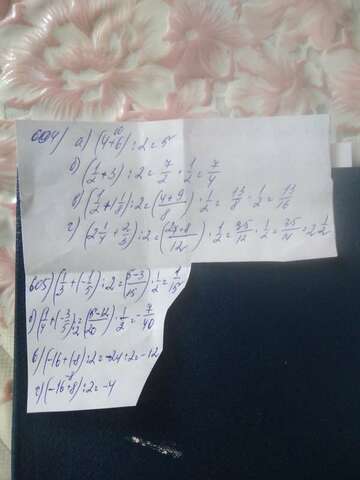 804) а) (4+6)^10 : 2 = 5
б) (1/2 + 3) : 2 = 7/2 · 1/2 = 7/4
в) (1/2 + 1 1/8) : 2 = (4+9/8) · 1/2 = 13/8 · 1/2 = 13/16
г) (2 1/4 + 2/3) : 2 = (27+8/12) · 1/2 = 35/12 · 1/2 = 35/24
805) (1/3 + (-1/5)) : 2 = (5-3/15) · 1/2 = 1/15
б) (1/4 + (-3/5)) : 2 = (5-12/20) · 1/2 = -7/40
в) (-16 + (-8)) : 2 = -24 : 2 = -12
г) (-16 + 8)^-8 : 2 = -4